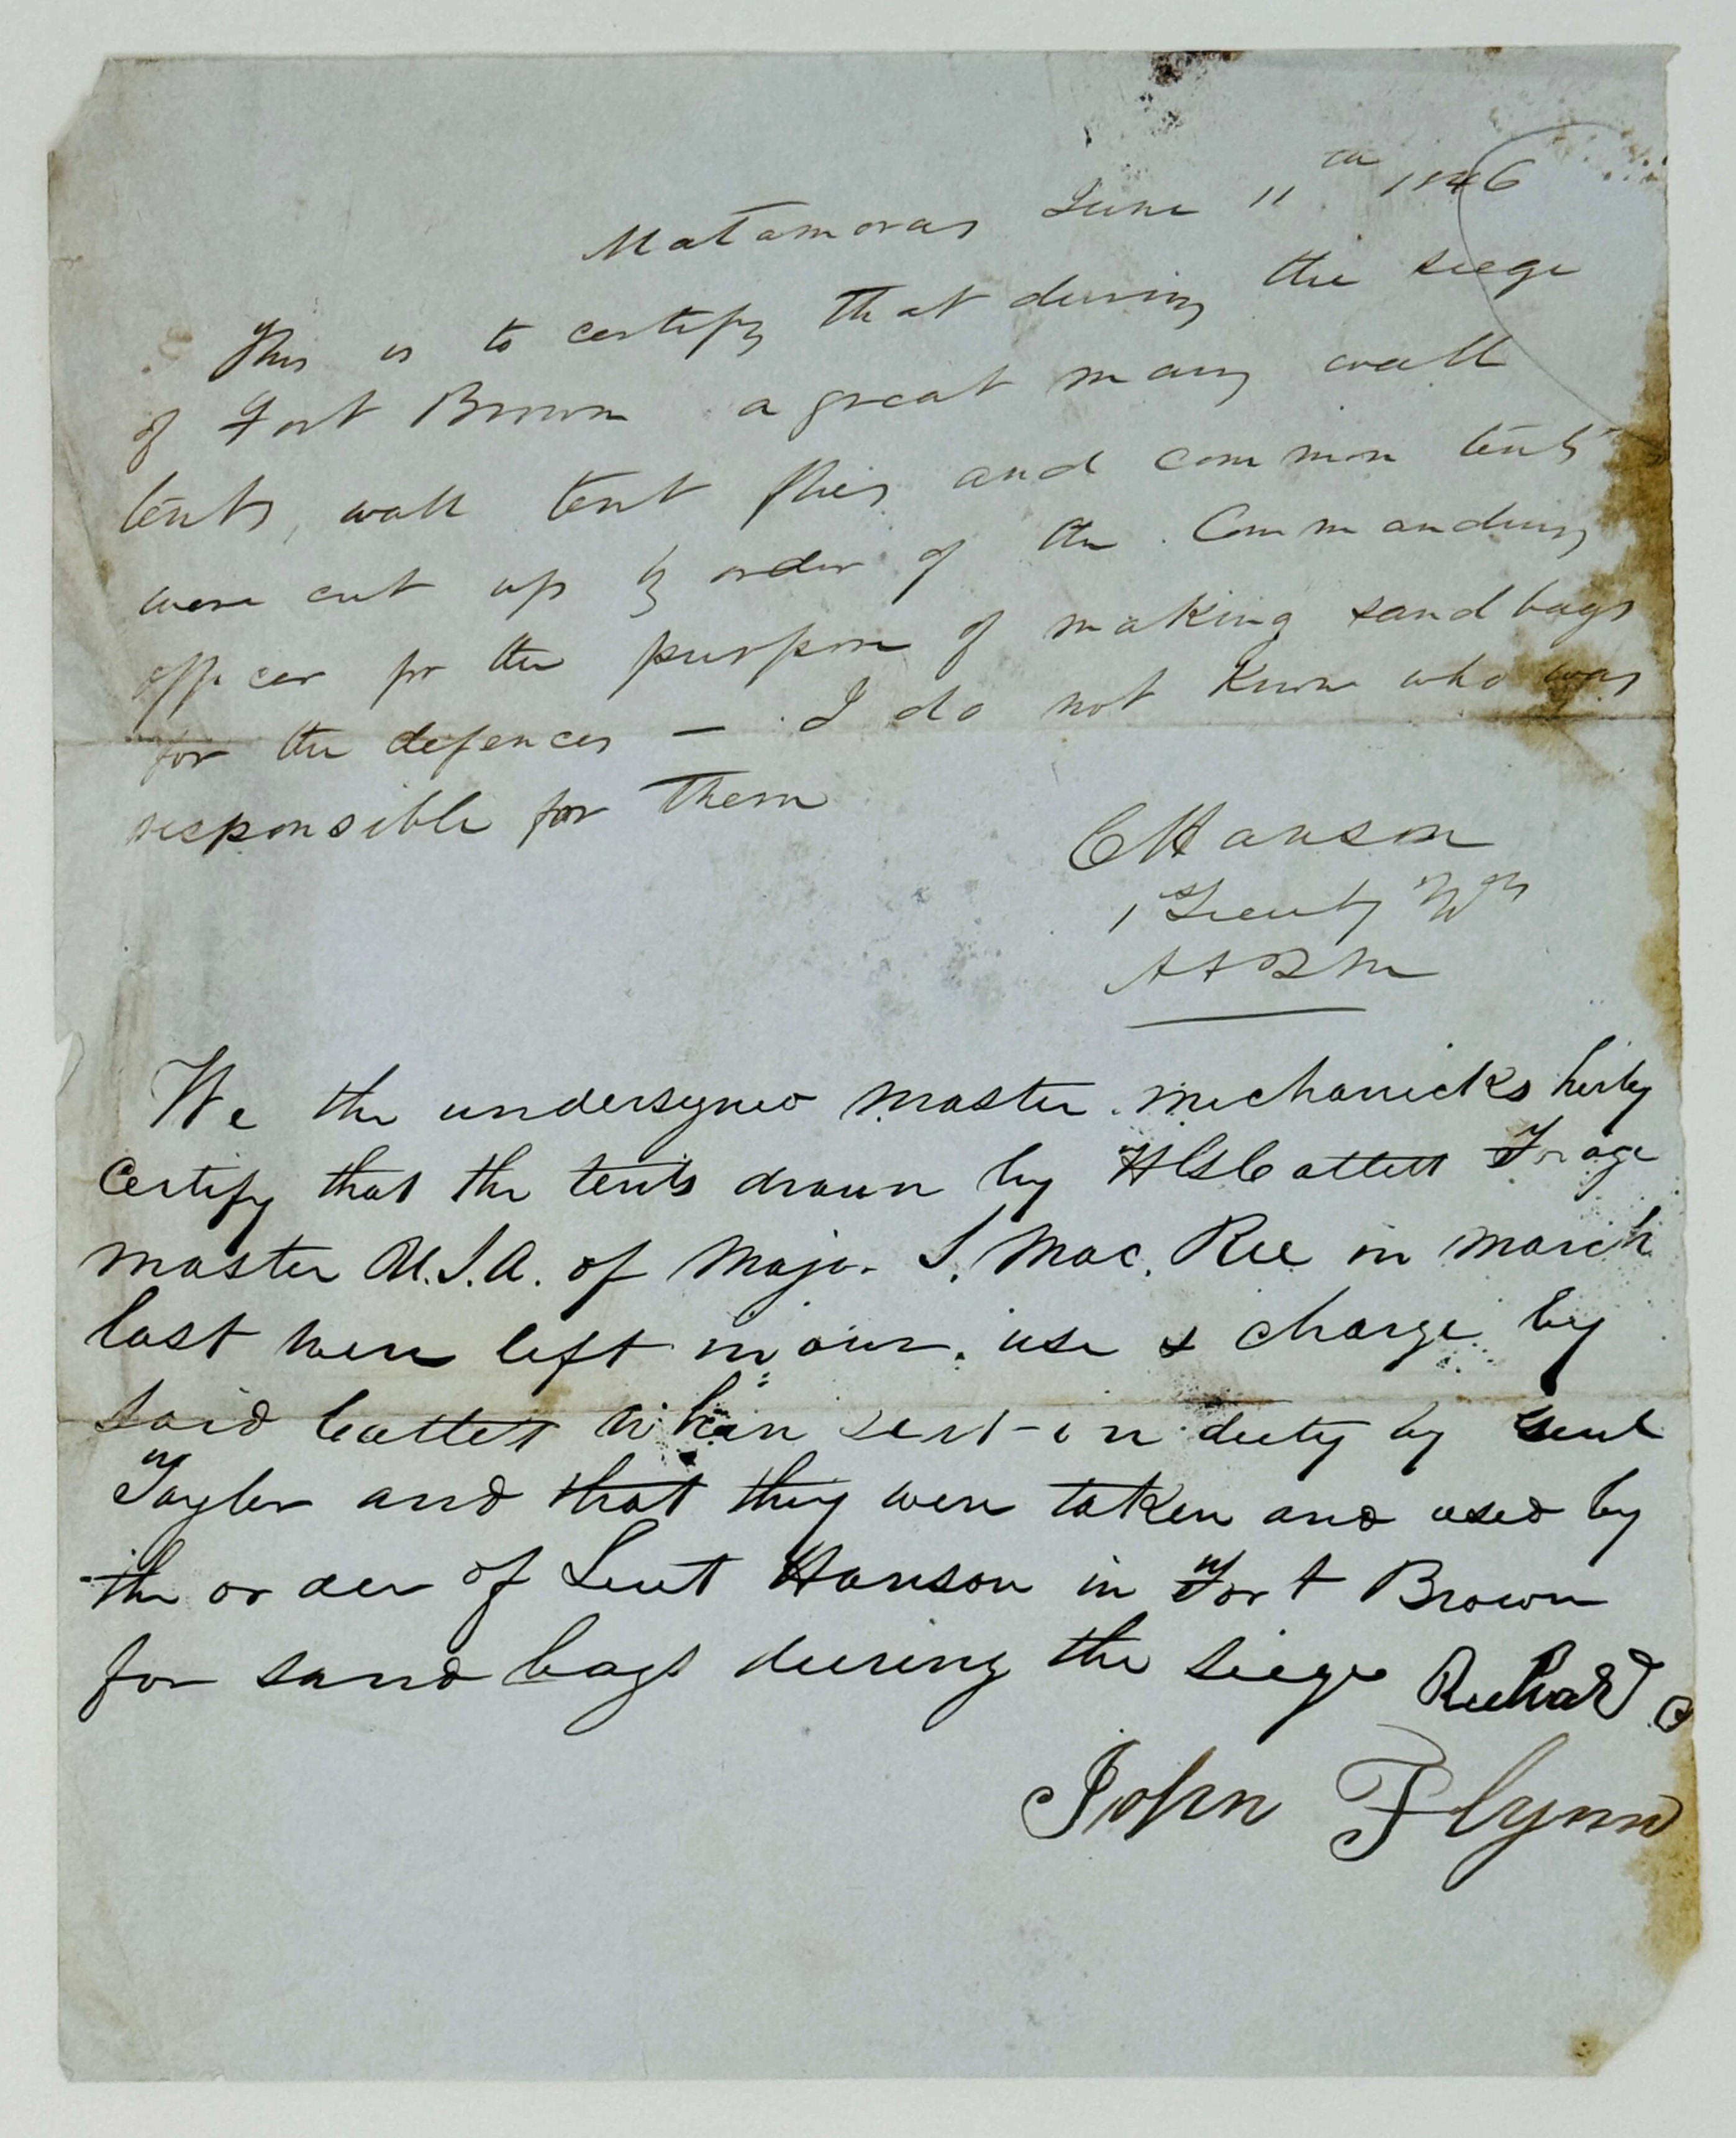 Matamoras June 11th 1846
This is to certify that during the siege
of Fort Brown a great many wall
tents, wall tent flies and common tents
were cut up by order of the Commanding
officer for the purpose of making sand bags
for the defences — I do not know who was
responsible for them
C Hanson
1 Lieut 7th
A A Q M
We the undersigned master mechanicks herby
Certify that the tents drawn by Forage
master U.S.A. of Major S. Mac. Ree in march
last were left in our use & charge by
said Cattett when sent on duty by Genl
Taylor and that they were taken and used by
the order of Leut Hanson in Fort Brown
for sand bags during the siege Richard
John Flynn